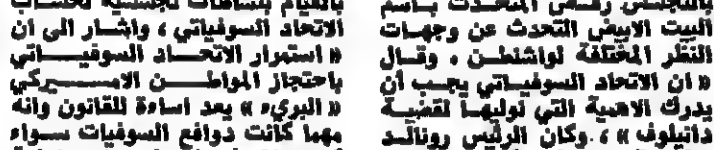 بالتجسس رفض المتحدث باسم
البيت الابيض التحدث عن وجهات
النظر المختلفة لواشنطن . وقال
« ان الاتحاد السوفياتي يجب أن
يدرك الاهمية التي نوليها لقضية
دانيلوف » ، وكان الرئيس رونالد
بالقيام بنشاطات تجسسية لحساب
الاتحاد السوفياتي ، واشار الى أن
« استمرار الاتحاد السوفيـــاتي
باحتجاز المواطن الاميركي
« البريء » يعد اساءة للقانون وانه
مهما كانت دوافع السوفيات سواء